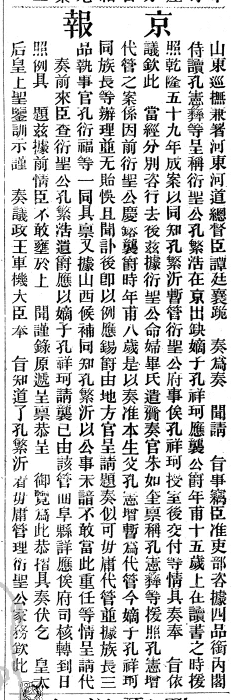 京報
山東巡撫兼署河東河道總督臣譚廷襄跪　奏爲奏　聞請　旨事竊臣准吏部咨據四品銜內閣
侍讀孔憲彝等呈稱衍聖公孔繁浩在京出缺嫡子孔祥珂應襲公爵年甫十五歲上在讀書之時援
照乾隆五十九年成案以同知孔繁沂暫管衍聖公府事俟孔祥珂授室後交付等情具奏奉　旨依
議欽此　當經分別咨行去後茲據衍聖公命婦畢氏遣彌奏官朱如奎稟稱孔憲彝等援照孔憲增
代管之案係因前衍聖公慶鎔襲爵時年甫八歲是以奏准本生父孔憲增暫爲代管今嫡子孔祥珂
同族長等辦理並無貽悞且聞訃後即以例應錫爵由地方官呈請題奏似可毋庸代管並據族長三
品執事官孔衍福等一同具稟又據山西候補同知孔繁沂以公事未諳不敢當此重任等情呈請代
奏前來臣查衍聖公孔繁浩遺爵應以嫡子孔祥珂請襲已由該管曲阜縣詳應俟府司核轉到日
照例具　題茲據前情臣不敢壅於上　聞謹錄原遞呈稟恭呈　御覽爲此恭摺具奏伏乞　皇太
后皇上聖鑒訓示謹　奏議政王軍機大臣奉　旨知道了孔繁沂着毋庸管理衍聖公家務欽此